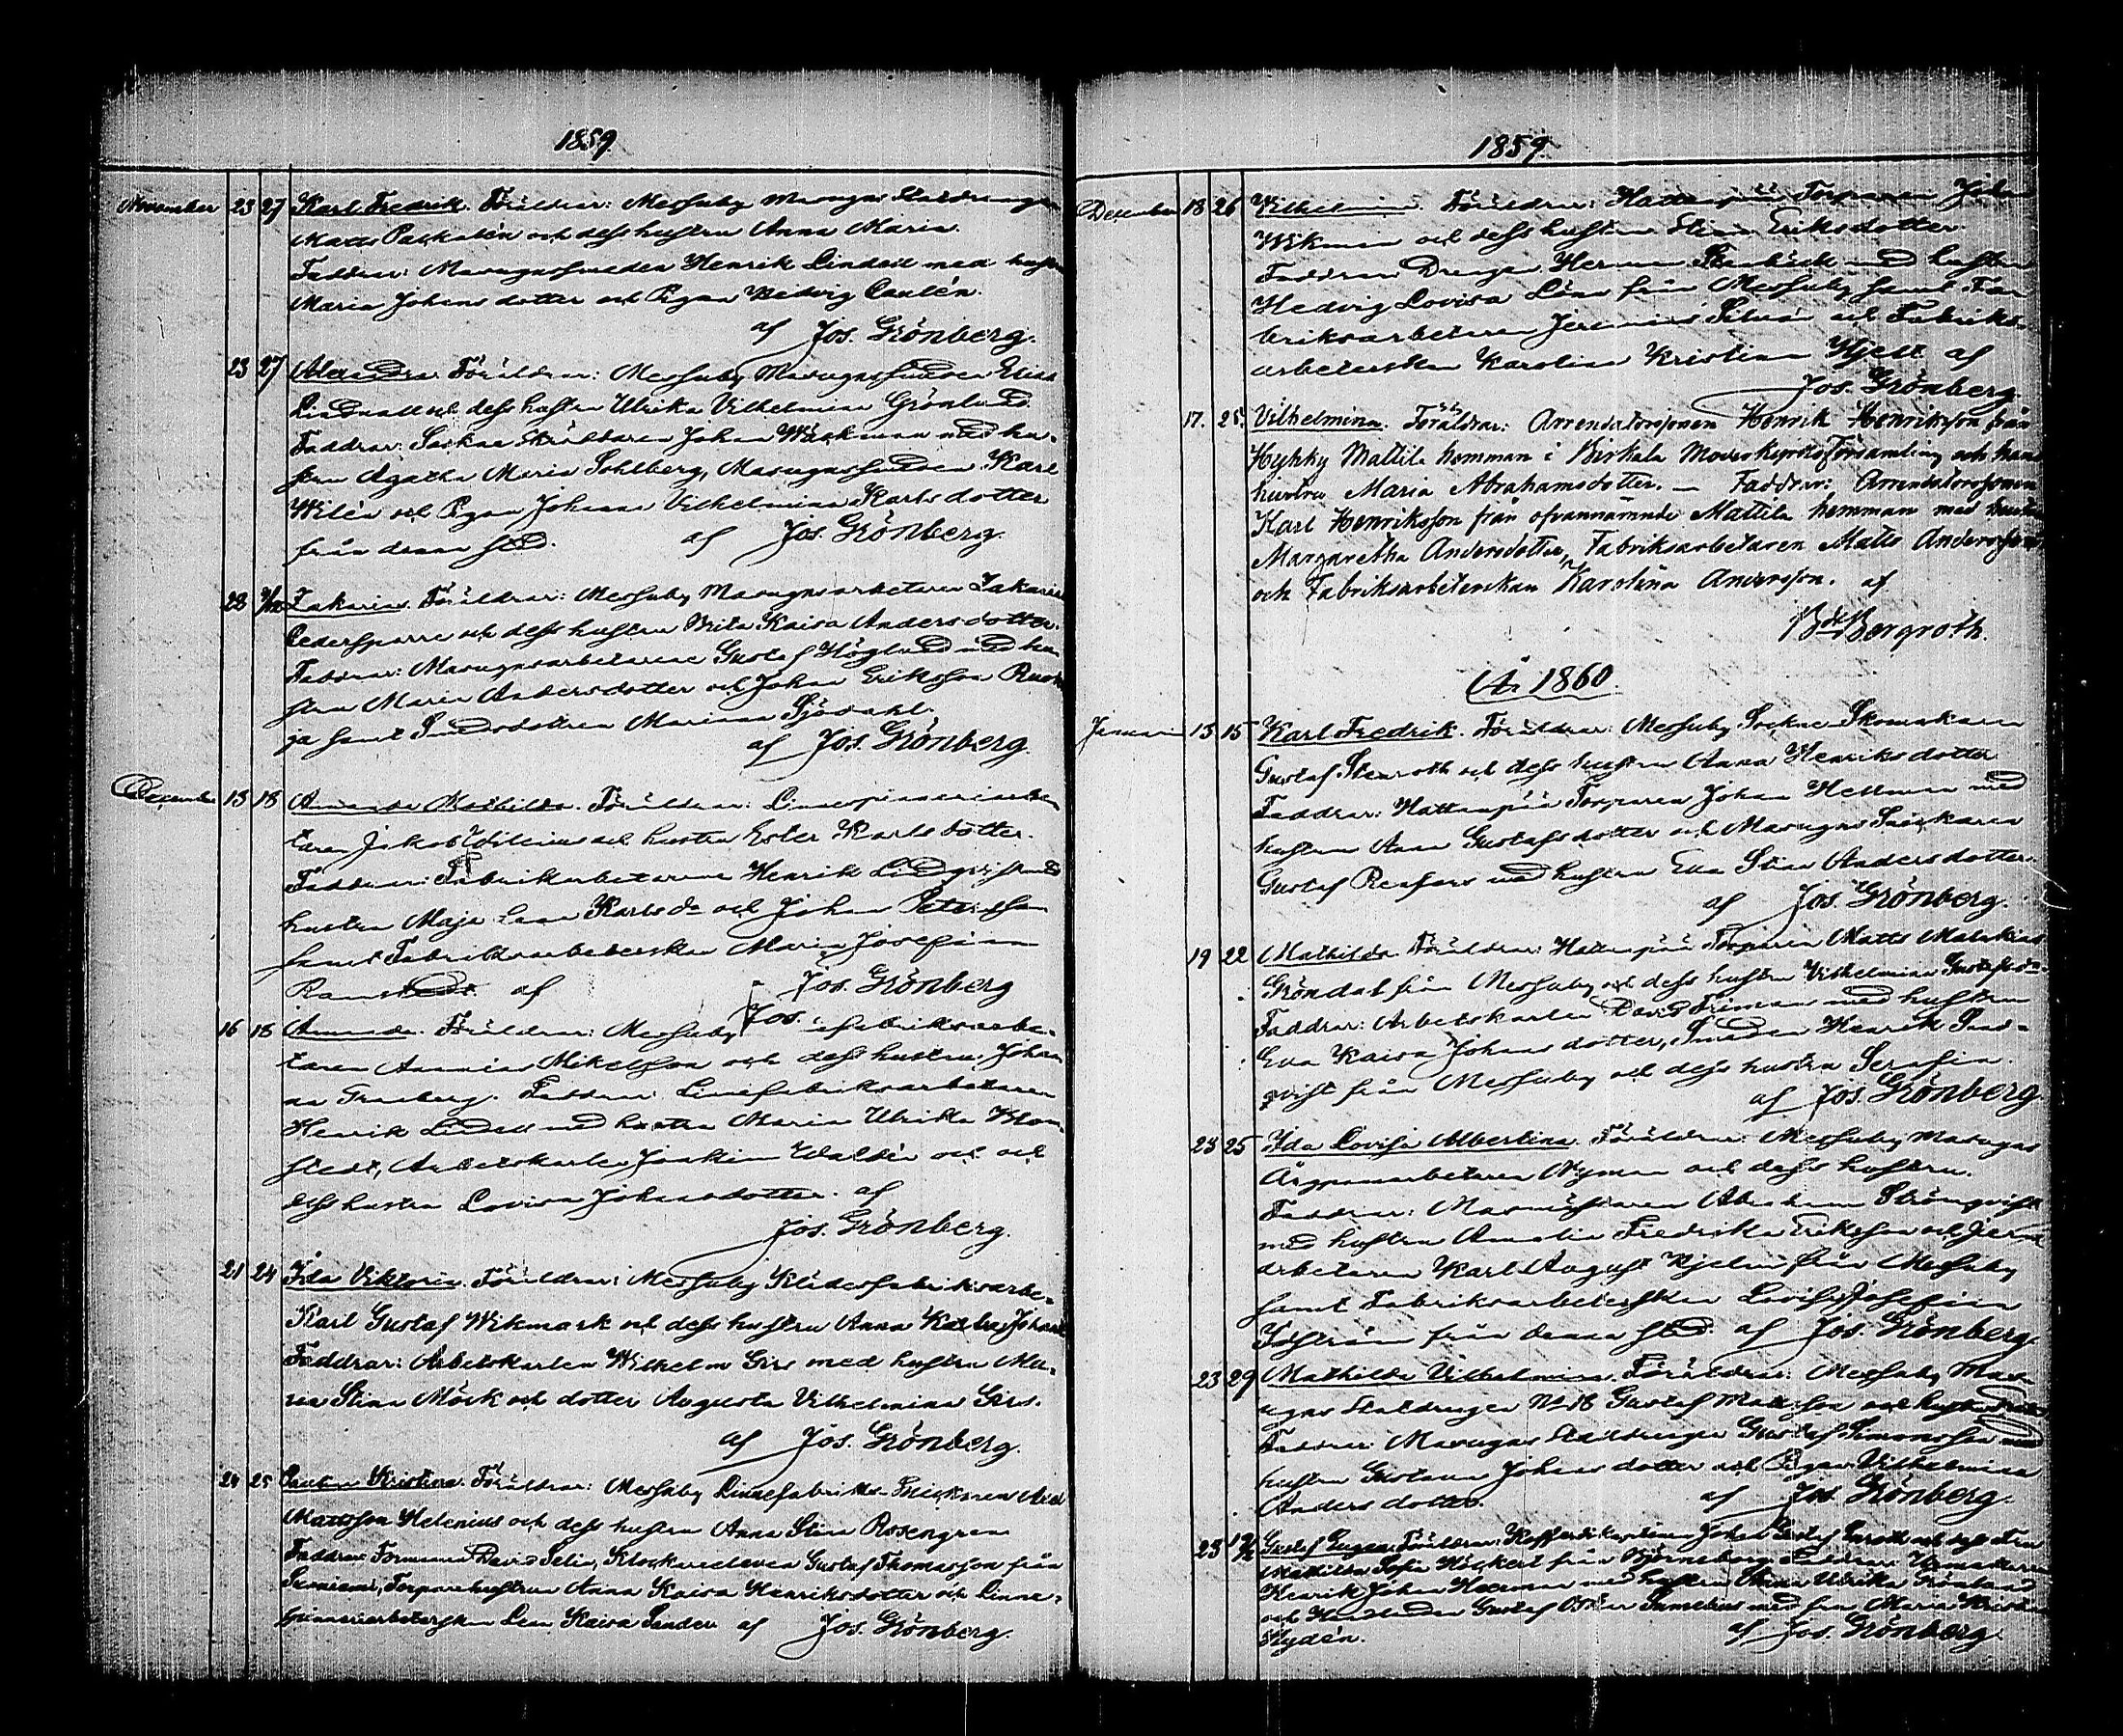 1859.
November 23 27 Karl Fredrik. Föräldrar: Messuby Masugns Staldrängen
Matts Packalén och dess hustru Anna Maria
Faddrar: Masugnssmeden Henrik Lindell med hustru
Maria Johansdotter och Pigan Hedvig Caulén.
af Jos. Grönberg.
23 27 Alexandra. Föräldrar: Messuby Masugnssmeden Elias
Lindvall och dess hustru Ulrika Vilhelmina Grönlund.
Faddrar: Sockne Skräddaren Johan Wäckman med hu-
stru Agatha Maria Sohlberg, Masugnssmeden Karl
Wilén och Pigan Johanna Vilhelmina Karlsdotter
från denna stad. af Jos. Grönberg
28 Zakarias. Föräldrar: Messuby Masugnsarbetaren Zakarias
Cedersparre och dess hustru Brita Kaisa Andersdotter.
Faddrar: Masugnsarbetarene Gustaf Höglund med hu-
stru Maria Andersdotter och Johan Eriksson
samt Smedsdottren Mariana Sjödahl.
af Jos. Grönberg.
December 13 18 Amanda Mathilda. Föräldrar: Linnespinneriarbe
taren Jakob och hustru Ester Karlsdotter.
Faddrar: Fabriksarbetarene Henrik Lindqvist med
hustru Maja Lena Karlsdr och Johan Petersson
samt Fabriksarbeterskan Maria Josefina
Ramstedt af Jos. Grönberg
16 18 Amanda. Föräldrar: Messuby fabriksarbe-
taren Ananias Mikelsson och dess hustru Johan
na Granberg. Faddrar: Linnefabriksarbetaren
Henrik Lindell med hustru Maria Ulrika Blom
stedt, Arbetskarlen Joakim Waldén och och
dess hustru Lovisa Johansdotter. af
Jos. Grönberg.
21 24 Ida Viktoria. Föräldrar: Messuby Klädesfabriksarbe-
Karl Gustaf Wikmark och dess hustru Anna Karolina Johans
Faddrar: Arbetskarlen Wilhelm Girs med hustru Ma-
ria Stina Mörk och dotter Augusta Vilhelmina Girs.
af Jos. Grönberg.
24 25 Kristina. Föräldrar: Messuby Linnefabriks Snickaren
Mattsson Helenius och dess hustru Anna Stina Rosengren
Faddrar: Formannen David Selin, Klockareeleven Gustaf Thomasson från
Torparehustrun Anna Kaisa Henriksdotter och Linne-
spinneriarbeterskan Lena Kaisa Sander af Jos. Grönberg.
1859.
December 18 26 Vilhelmina. Föräldrar: Hattanpää Torparen Johan
Wikman och dess hustru Stina Eriksdotter.
Faddrar: Drengen Herman Stenbäck med hustru
Hedvig Lovisa Löna från Messuby samt Fa-
briksarbetaren Jeremias Silvén och Fabriks-
arbeterskan Karolina Kristina Hjelt af
Jos. Grönberg
17. 25. Vilhelmina. Föräldrar: Arrendatorssonen Henrik Henriksson från
Hyhky Mattila hemman i Birkala Moderkyrkoförsamling och hans
hustru Maria Abrahamsdotter. — Faddrar: Arrendatorssonen
Karl Henriksson från ofvannämnde Mattila hemman med hustru
Margaretha Andersdotter, Fabriksarbetaren Matts Andersson
och Fabriksarbeterskan Karolina Andersson. af
Bergroth.
År 1860
Januari 13 15 Karl Fredrik. Föräldrar: Messuby Sockne Skomakaren
Gustaf Stenroth och dess hustru Anna Henriksdotter
Faddrar: Hattanpää Torparen Johan Hellman med
hustru Anna Gustafsdotter och Masugns Snickaren
Gustaf Renfors med hustru Eva Stina Andersdotter.
af Jos. Grönberg.
19 22 Mathilda. Föräldrar: Hattanpää Torparen Matts Malakias
Gröndal från Messuby och dess hustru Vilhelmina Gustafsdr.
Faddrar: Arbetskarlen David Friman med hustru
Eva Kaisa Johansdotter, Smeden Henrik Sand-
qvist från Messuby och dess hustru Serafina.
af Jos. Grönberg
23 25 Ida Lovisa Albertina. Föräldrar: Messuby Masugns
Ångpannarbetaren Nyman och dess hustru.
Faddrar: Masmästaren Abraham Strömqvist
med hustru Amalia Fredrika Eriksson och
arbetaren Karl August Hjelm från Messuby
samt Fabriksarbeterskan Lovisa Josefina
från denna stad. af Jos. Grönberg.
23 29 Mathilda Vilhelmina. Föräldrar: Messuby Mas-
ugns Staldrengen No 18 Gustaf Mattsson och hustru
Faddrar: Masugns Staldrengen Gustaf Simonsson med
hustru Gustava Johansdotter och Pigan Vilhelmina
Andersdotter. af Jos. Grönberg.
23 Gustaf Eugen. Föräldrar: Kofferdikaptenen Johan Gustaf och dess Fru
Mathilda Sofia Höckert från Björneborg. Faddrar:
Henrik Johan med hustru Anna Ulrika Grönlund
och Handlanden Gustaf Oskar Sumelius med fru Maria
Hydén. af Jos. Grönberg.